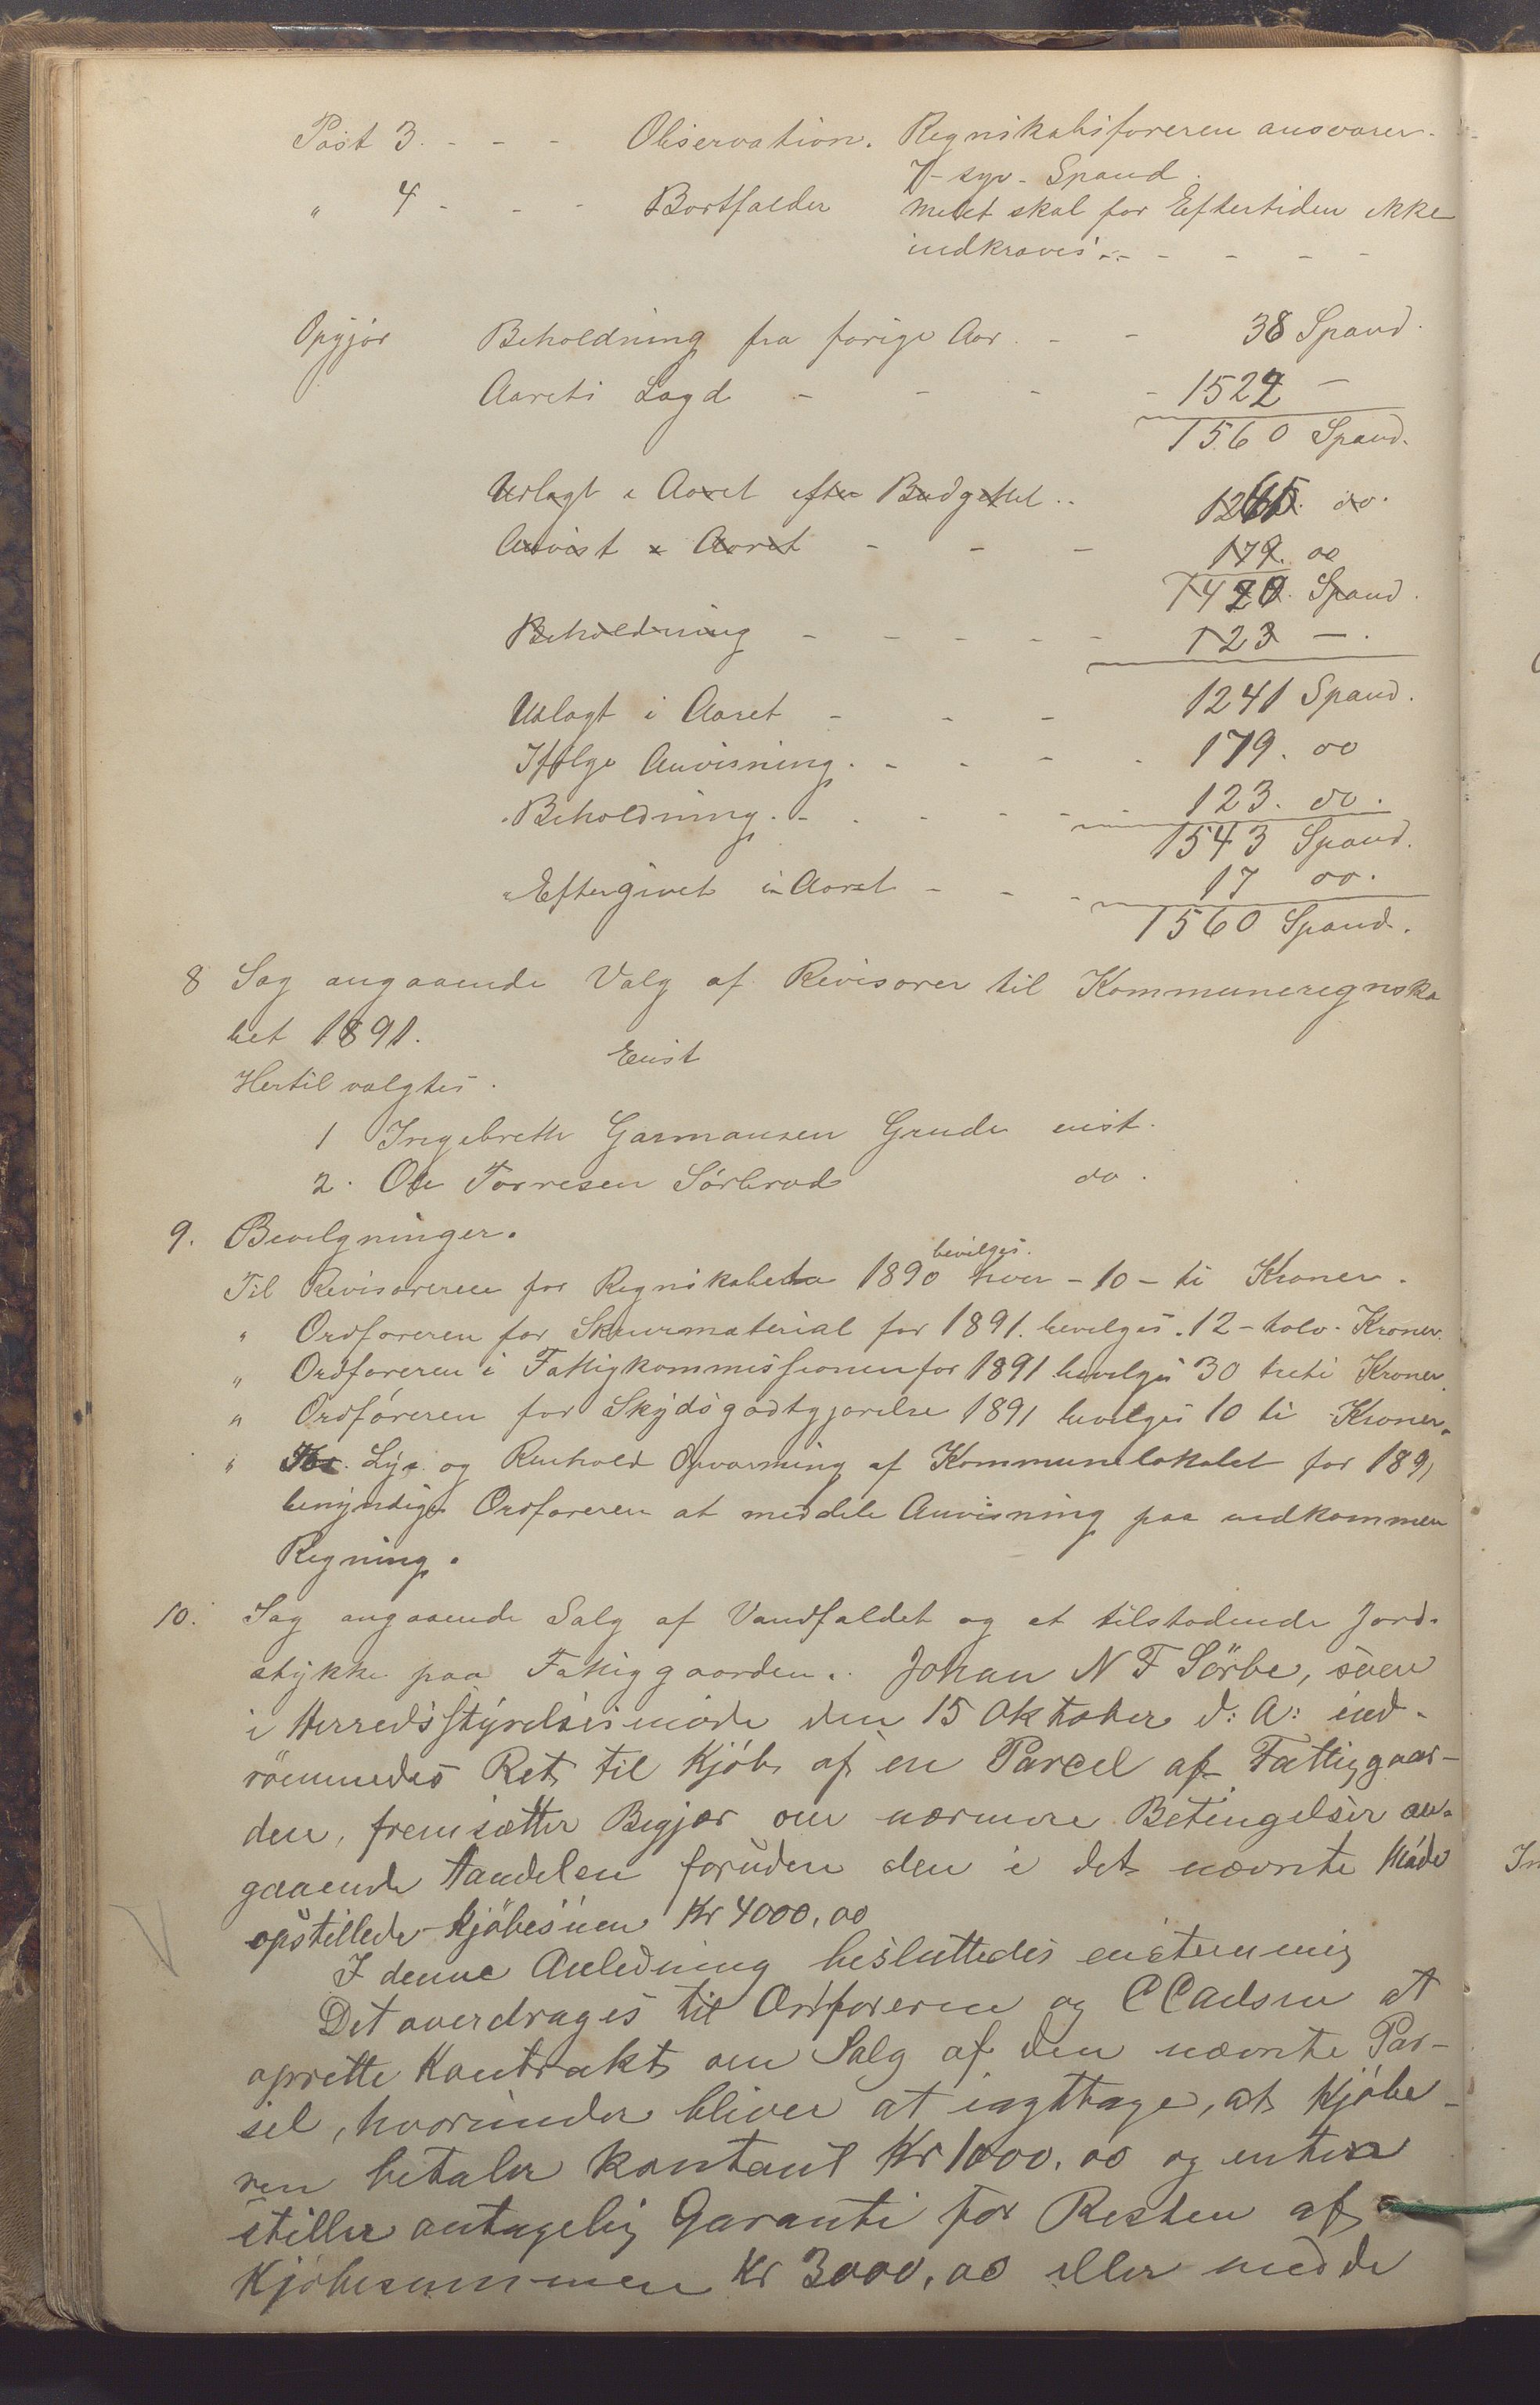 Post 3. - - - Observation. Regnskabsføreren ansvarer
7 - syv - Spand.
" 4 - - - Bortfalder melet skal for Eftertiden ikke
indkræves. - - - - -
Opgjør Beholdning fra forige Aar. - - 38 Spand.
Aarets Lagd - - - - 1522 -
1560 Spand.
Udlagt i Aaret efter Budgettet .. 1265. do.
Anvist i Aaret - - - 179. do
1420. Spand.
Beholdning - - - - - 123 -.
Udlagt i Aaret - - - 1241 Spand.
Ifølge Anvisning. - - - - 179. do
Beholdning. - - - - - 123. do.
1543 Spand.
Eftergivet i Aaret - - - 17 do.
1560 Spand.
8 Sag angaaende Valg af Revisorer til Kommuneregnska
bet 1891.
Enst
Hertil valgtes.
1 Ingebreth Garmansen Grude enst.
2. Ole Torresen Sørbrød do.
9. Bevilgninger.
bevilges.
Til Revisorerne for Regnskaberne 1890 hver - 10 - ti Kroner.
" Ordføreren for Skrivmaterial for 1891. bevilges. 12 - tolv - Kroner.
" Ordføreren i Fattigkommissionen for 1891 bevilges 30 treti Kroner.
" Ordføreren for Skydsgodtgjørelse 1891 bevilges 10 ti Kroner.
" Lys og Renhold Opvarming af Kommunelokalet for 1891
bemyndiges Ordføreren at meddele Anvisning paa indkommen
Regning.
10. Sag angaaende Salg af Vandfaldet og et tilstødende Jord-
stykke paa Fattiggaarden.. Johan N F Sörbø, som
i Herredsstyrelsesmøde den 15 Oktober d: A: ind-
römmedes Ret til Kjöb af en Parcel af Fattiggaar-
den, fremsætter Begjær om nærmere Betingelser an-
gaaende Handelen foruden den i det nævnte Møde
opstillede Kjöbesum Kr 4000,00
I denne Anledning besluttedes enstemmig
Det overdrages til Ordføreren og C Carlsen at
oprette Kontrakt om Salg af den nævnte Par-
sel, hvorunder bliver at iagttage, at Kjøbe-
ren betaler kontant Kr 1000,00 og enten
stiller antagelig Garanti for Resten af
Kjøbesummen Kr 3000,00 eller med de